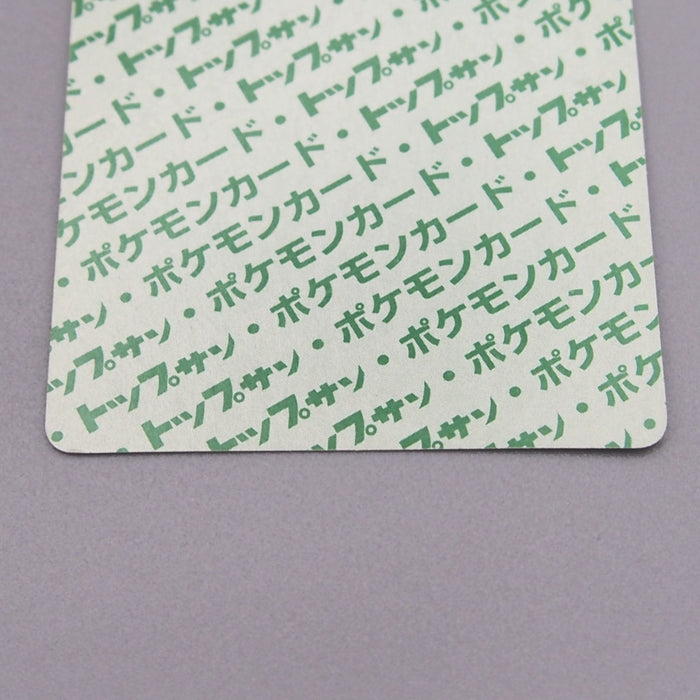 トップサン
ド・トップサン
カード・トップサン
ンカード・トップサン・
ケモンカード・トップサン・ポ
・ポケモンカード・トップサン・ポケ
サン・ポケモンカード・トップサン・ポ
ップサン・ポケモンカード・トップサン
・トップサン・ポケモンカード・トップサ
・トップサン・ポケモンカード・ト
トップサン・ポケモンカード
プサン・ポケモンカー
サン・ポケモン
・ポケ
・